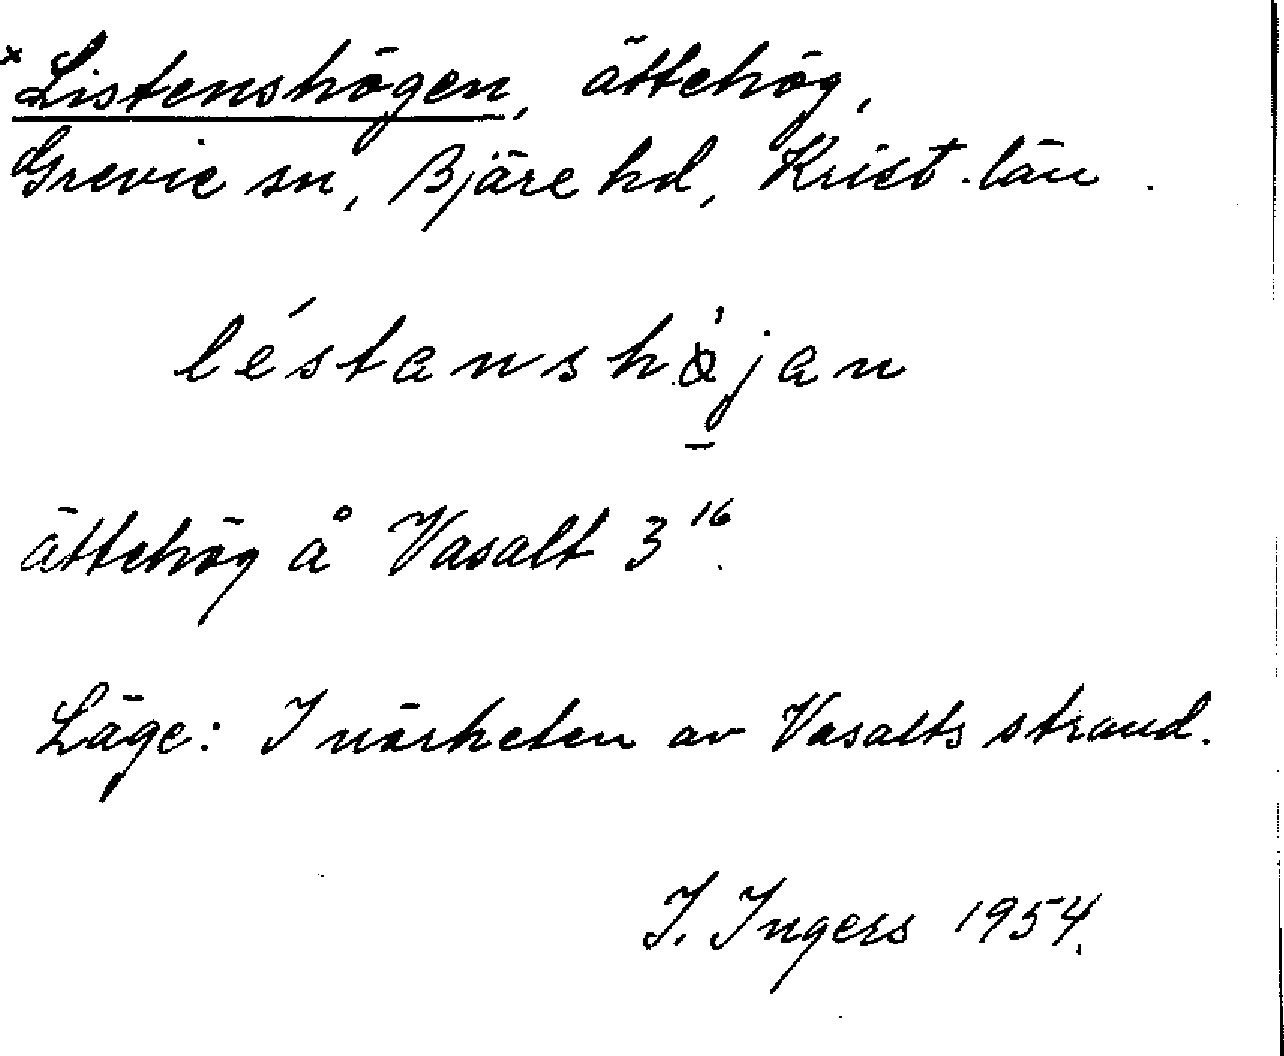 × Listenshögen, ättehög,
Grevie sn, Bjäre hd, Krist. län.
léstanshǫ̀jan
ättehög å Vasalt 3¹⁶.
Läge: I närheten av Vasalts strand.
I. Ingers 1954.